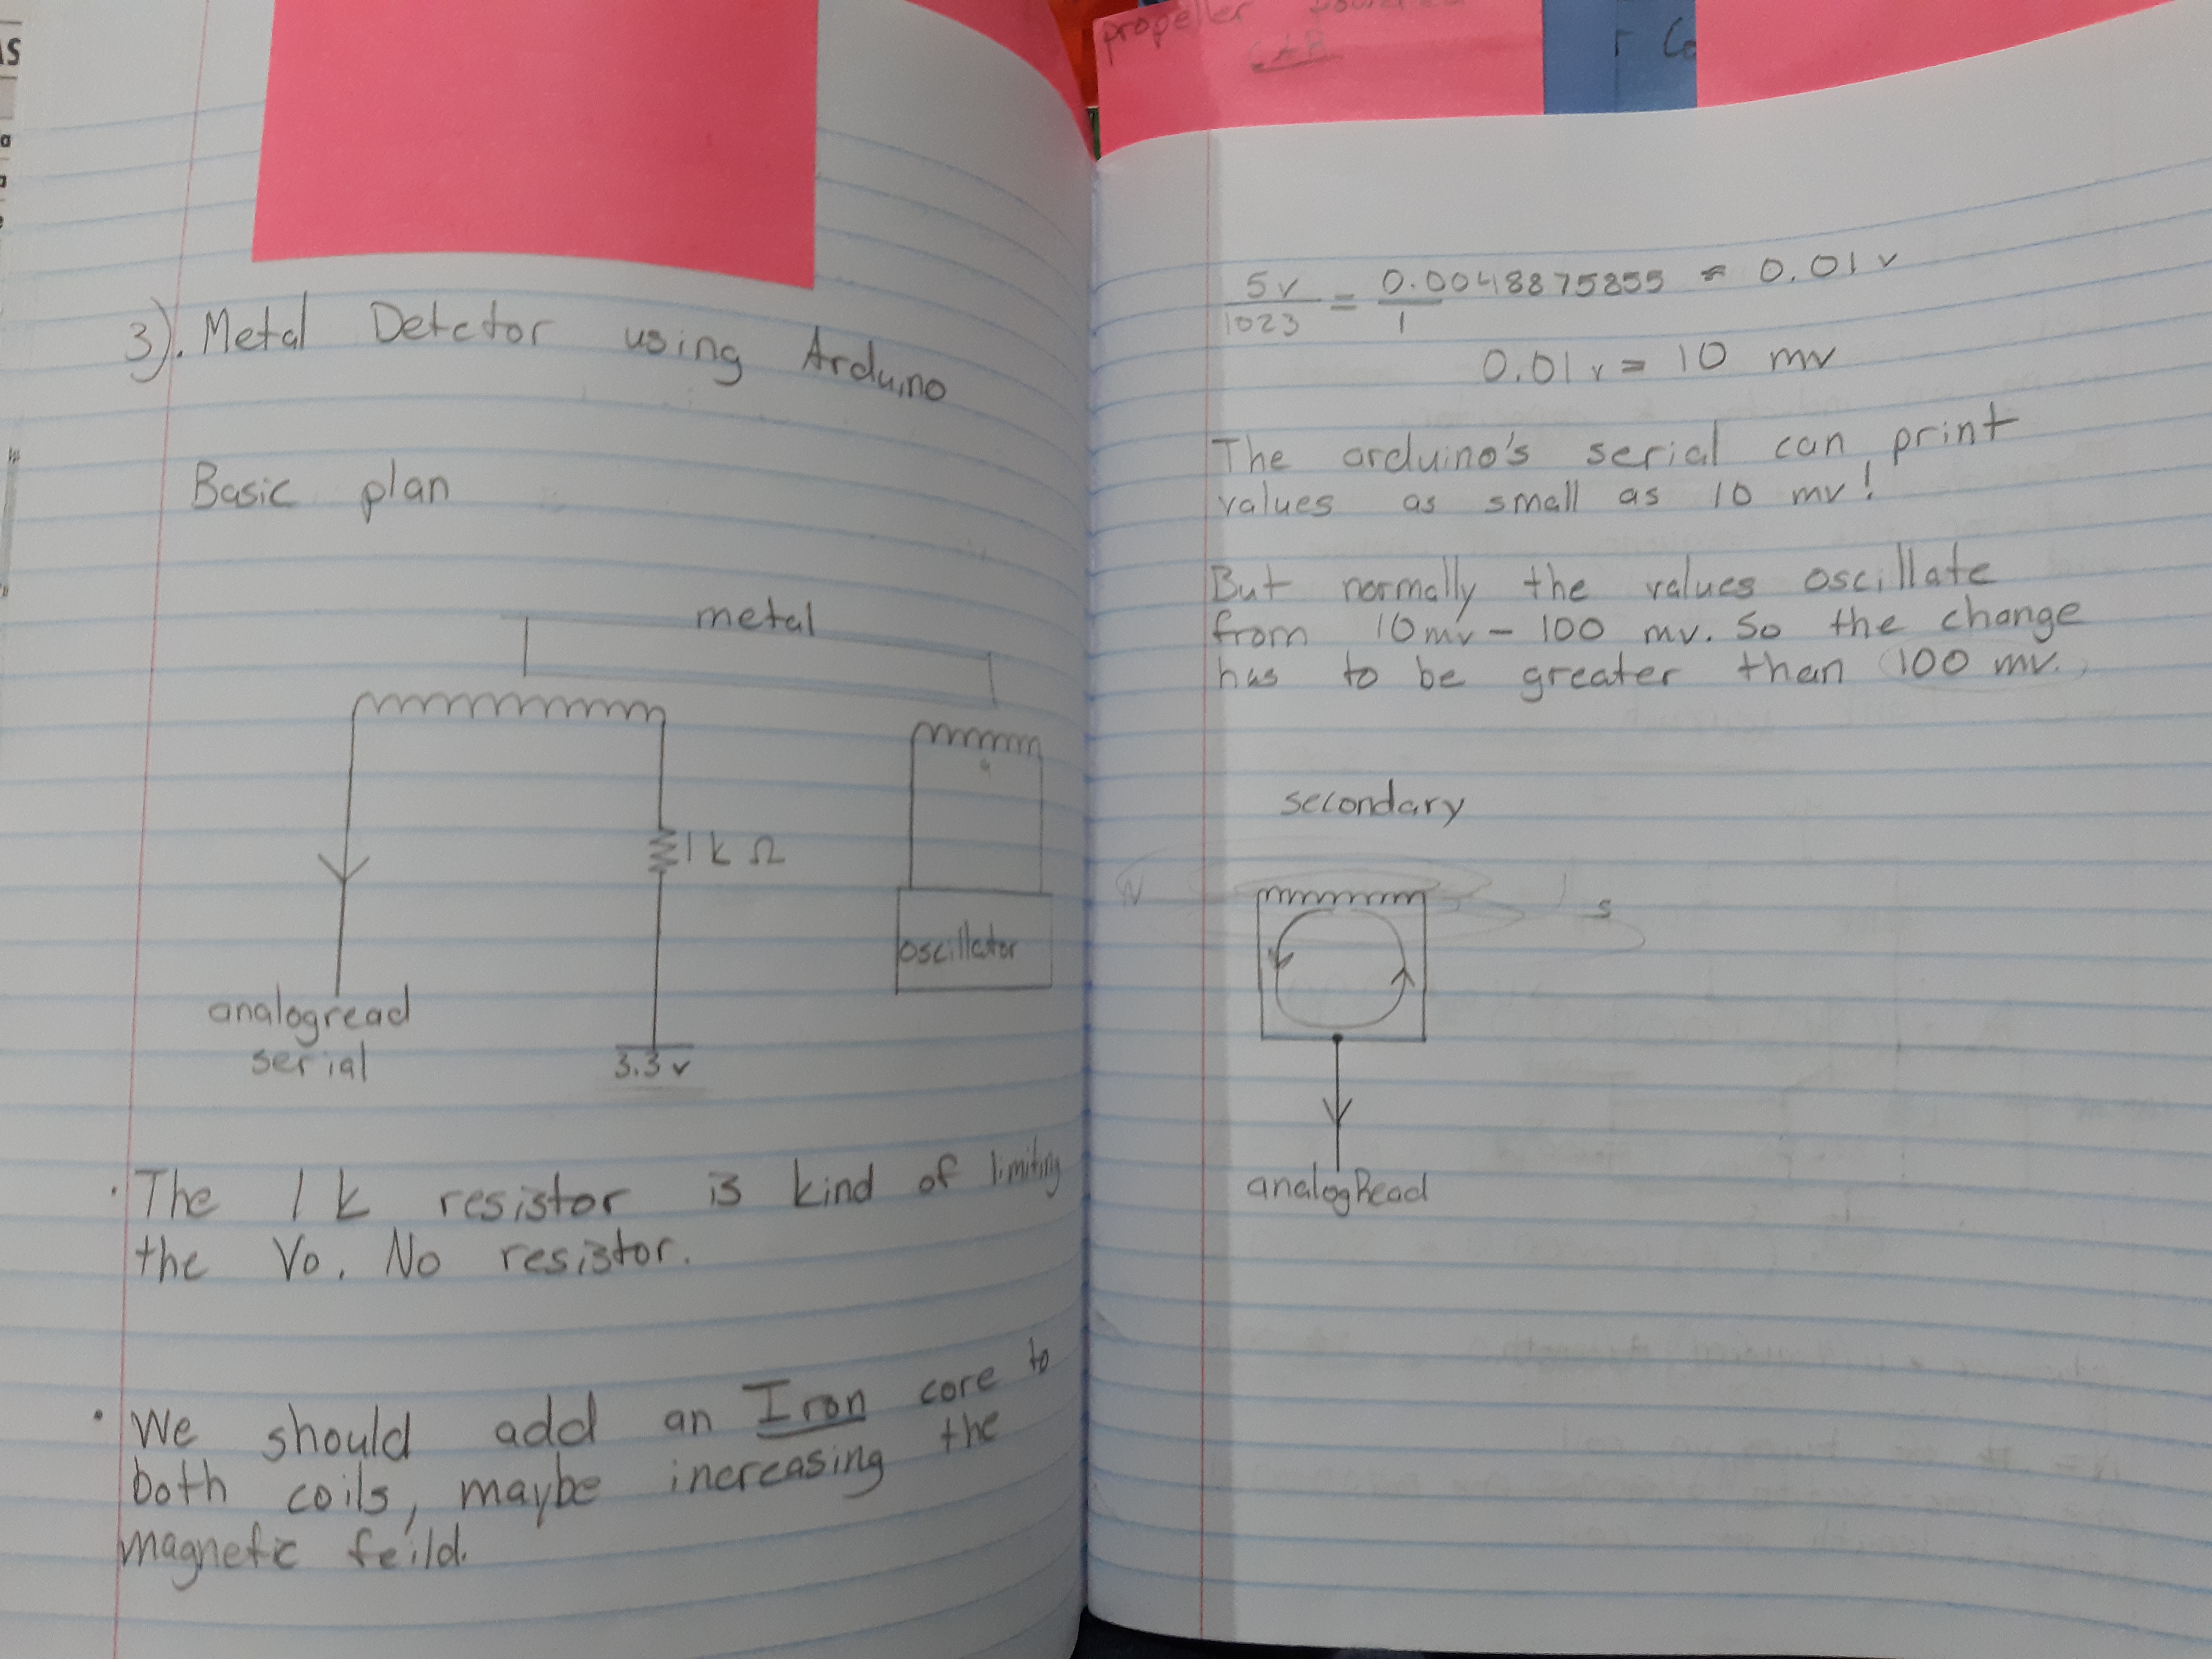 AS
a
propeller
CAR
r Co
3). Metal Detctor using Arduino
Basic plan
metal
1 k Ω
oscillator
analogread
serial
3.3 v
· The 1 k resistor is kind of limiting
the Vo. No resistor.
· We should add an Iron core to
both coils, maybe increasing the
magnetic feild.
5v/1023 = 0.0048875855/1 ≈ 0.01 v
0.01 v = 10 mv
The arduino's serial can print
values as small as 10 mv!
But normally the values oscillate
from 10mv - 100 mv. So the change
has to be greater than 100 mv.
secondary
N
S
analogRead